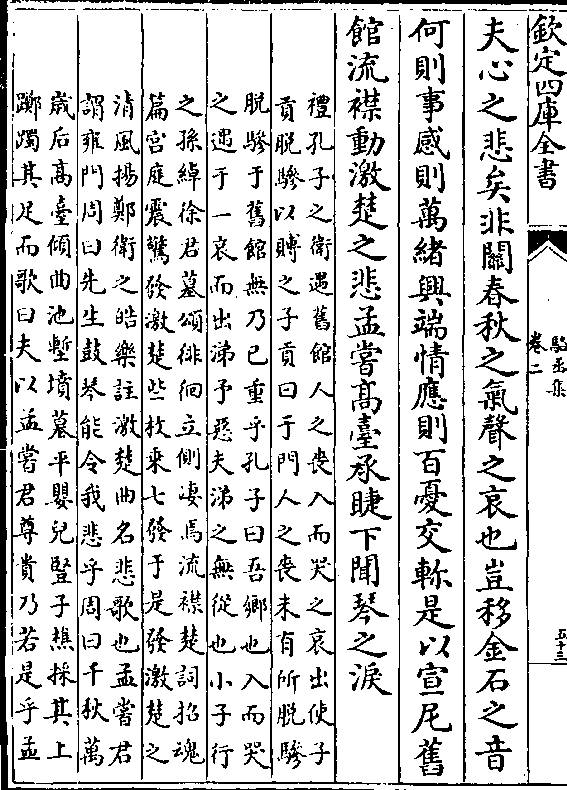 欽定四庫全書
駱丞集
卷二
五十三
夫心之悲矣非關春秋之氣聲之哀也豈移金石之音
何則事感則萬緒興端情應則百憂交軫是以宣尼舊
館流襟動激楚之悲孟嘗高臺承睫下聞琴之淚
禮孔子之衛遇舊館人之喪入而哭之哀出使子
貢脱驂以賻之子貢曰于門人之喪未有所脱驂
脱驂于舊館無乃已重乎孔子曰吾鄉也入而哭
之遇于一哀而出涕予惡夫涕之無從也小子行
之孫綽徐君墓頌徘徊立側凄焉流襟楚詞招魂
篇宫庭震驚發激楚些枚乘七發于是發激楚之
清風揚鄭衛之皓樂註激楚曲名悲歌也孟嘗君
謂雍門周曰先生鼓琴能令我悲乎周曰千秋萬
歲后高臺傾曲池塹墳墓平嬰兒豎子樵採其上
躑躅其足而歌曰夫以孟嘗君尊貴乃若是乎孟